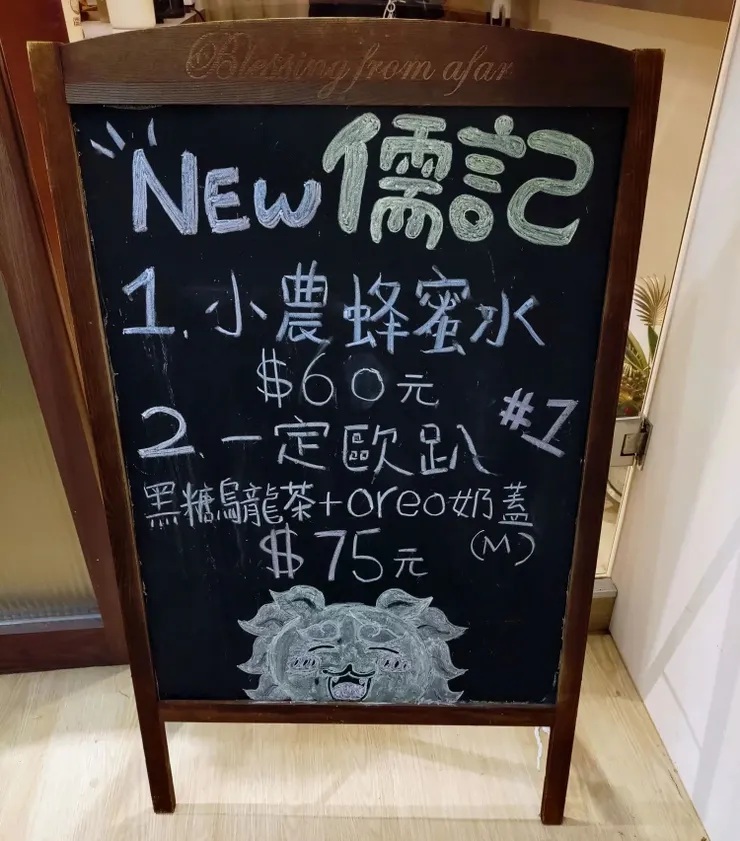 Blessing from afar
NEW 儒記
1. 小農蜂蜜水
$60元
2. 一定歐趴 #1
黑糖烏龍茶+oreo奶蓋
$75元 (M)